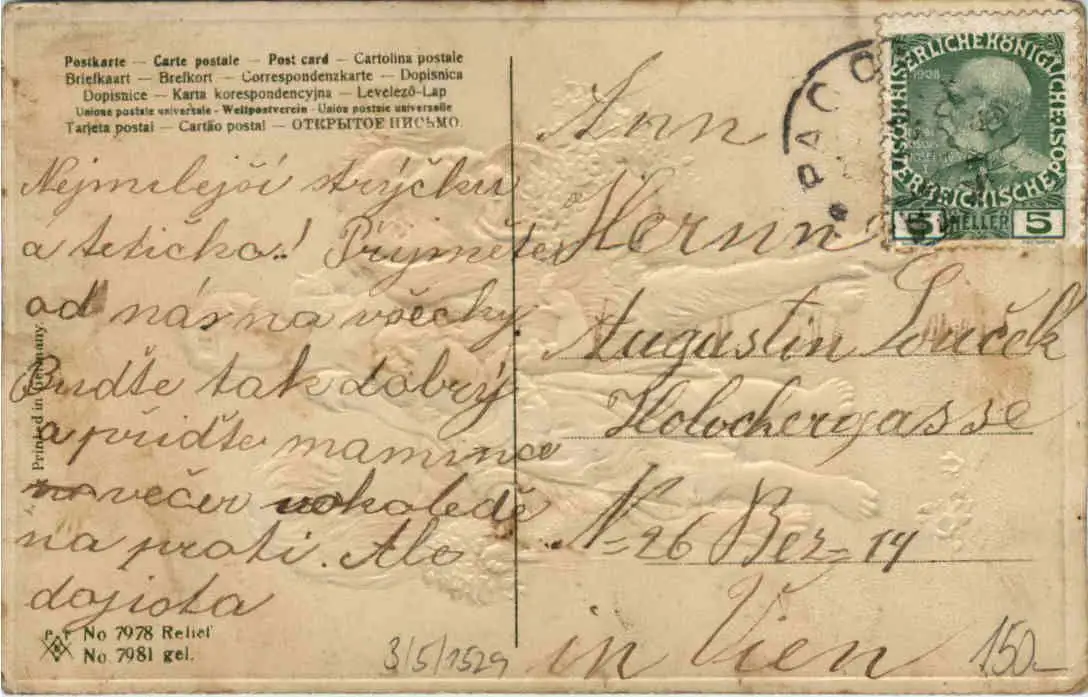 Postkarte — Carte postale — Post card — Cartolina postale
Briefkaart — Brefkort — Correspondenzkarte — Dopisnica
Dopisnice — Karta korespondencyjna — Levelező-Lap
Unione postale universale - Weltpostverein - Union postale universelle
Tarjeta postal — Cartão postal — ОТКРЫТОЕ ПИСЬМО.
Nejmilejší strýčku
a tetičko! Přijměte
od nás na všecky
Buďte tak dobrý
a přiďte mamince
večer
na proti. Ale
dojista
Printed in Germany.
P. F. B
No 7978 Relief
No. 7981 gel.
3/5/1529
PACO
KAISERLICHE KÖNIGLICHE
ÖSTERREICHISCHE POST
1908
5 HELLER 5
Ann
Herrn
Augustin Souček
Holochergasse
N=26 Bez=14
in Vien
150-